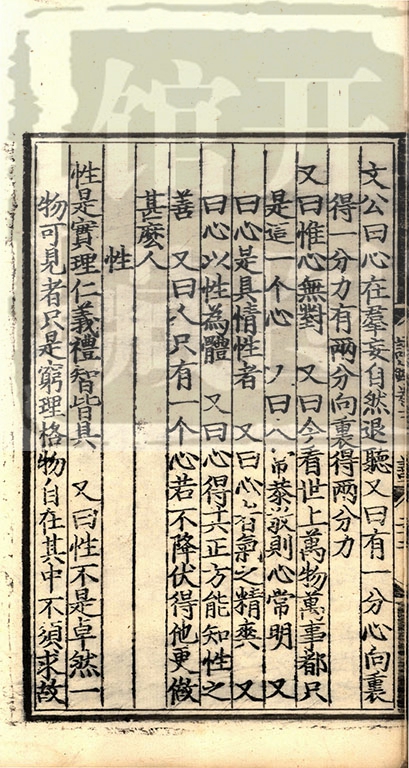 文公曰心在羣妄自然退聽又曰有一分心向裏
得一分力有兩分向裏得兩分力
又曰惟心無對 又曰今看世上萬物萬事都只
是這一个心 又曰人常恭敬則心常明 又
曰心是具情性者 又曰心者氣之精爽 又
曰心以性為體 又曰心得其正方能知性之
善 又曰人只有一个心若不降伏得他更做
甚麽人
性
性是實理仁義禮智皆具 又曰性不是卓然一
物可見者只是窮理格物自在其中不須求故